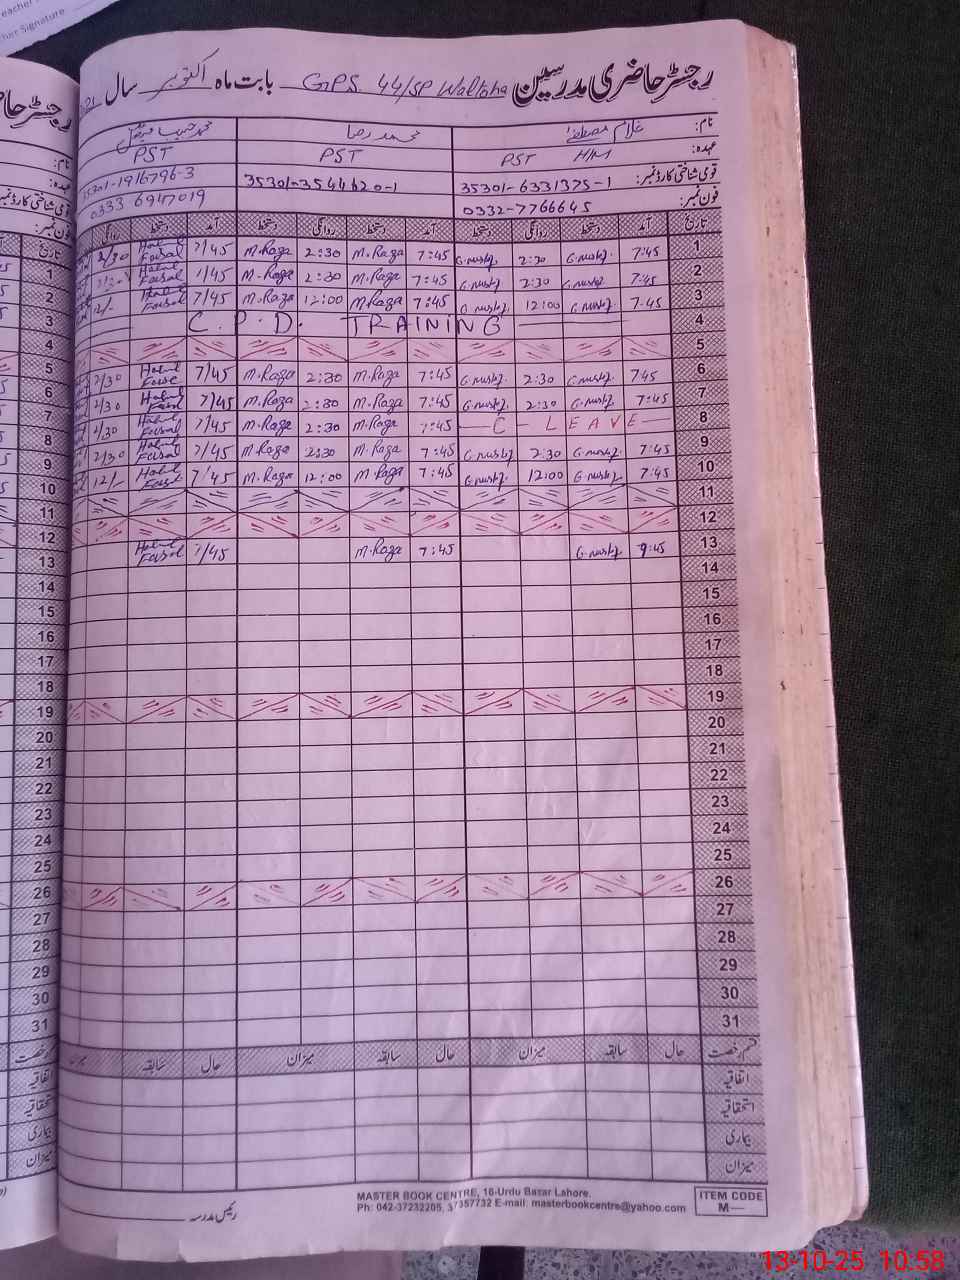 eacher
cher Signature
رجسٹر حاضری مدرسین G.P.S. 44/SP Waltoha بابت ماہ اکتوبر سال
نام: غلام مصطفیٰ محمد رضا محمد حبیب
عہدہ: PST H/M PST PST
قومی شناختی کارڈ نمبر: 35301-6331375-1 35301-3544620-1 35301-1916796-3
فون نمبر: 0332-7766645 0333 6947019
تاریخ آمد دستخط روانگی دستخط آمد دستخط روانگی دستخط آمد دستخط روانگی
1 7:45 G.mustf. 2:30 G.mustf. 7:45 M.Raza 2:30 M.Raza 7/45 Habib Faisal 2/30
2 7:45 G.mustf. 2:30 G.mustf. 7:45 M.Raza 2:30 M.Raza 7/45 Habib Faisal
3 7:45 G.mustf. 12:00 G.mustf. 7:45 M.Raza 12:00 M.Raza 7/45 Habib Faisal 12/-
4 C.P.D. TRAINING
5
6 7:45 G.mustf. 2:30 G.mustf. 7:45 M.Raza 2:30 M.Raza 7/45 Habib Faisal 2/30
7 7:45 G.mustf. 2:30 G.mustf. 7:45 M.Raza 2:30 M.Raza 7/45 Habib Faisal 2/30
8 C - LEAVE 7:45 M.Raza 2:30 M.Raza 7/45 Habib Faisal 2/30
9 7:45 G.mustf. 2:30 G.mustf. 7:45 M.Raza 2:30 M.Raza 7/45 Habib Faisal 2/30
10 7:45 G.mustf. 12:00 G.mustf. 7:45 M.Raza 12:00 M.Raza 7/45 Habib Faisal 12/-
11
12
13 7:45 G.mustf. 7:45 M.Raza 7/45 Habib Faisal
14
15
16
17
18
19
20
21
22
23
24
25
26
27
28
29
30
31
قسم رخصت حال سابقہ میزان حال سابقہ میزان حال سابقہ
اتفاقیہ
استحقاقیہ
بیماری
میزان
رئیس مدرسہ
MASTER BOOK CENTRE, 16-Urdu Bazar Lahore.
Ph: 042-37232205, 37357732 E-mail: masterbookcentre@yahoo.com
ITEM CODE
M—
13-10-25 10:58